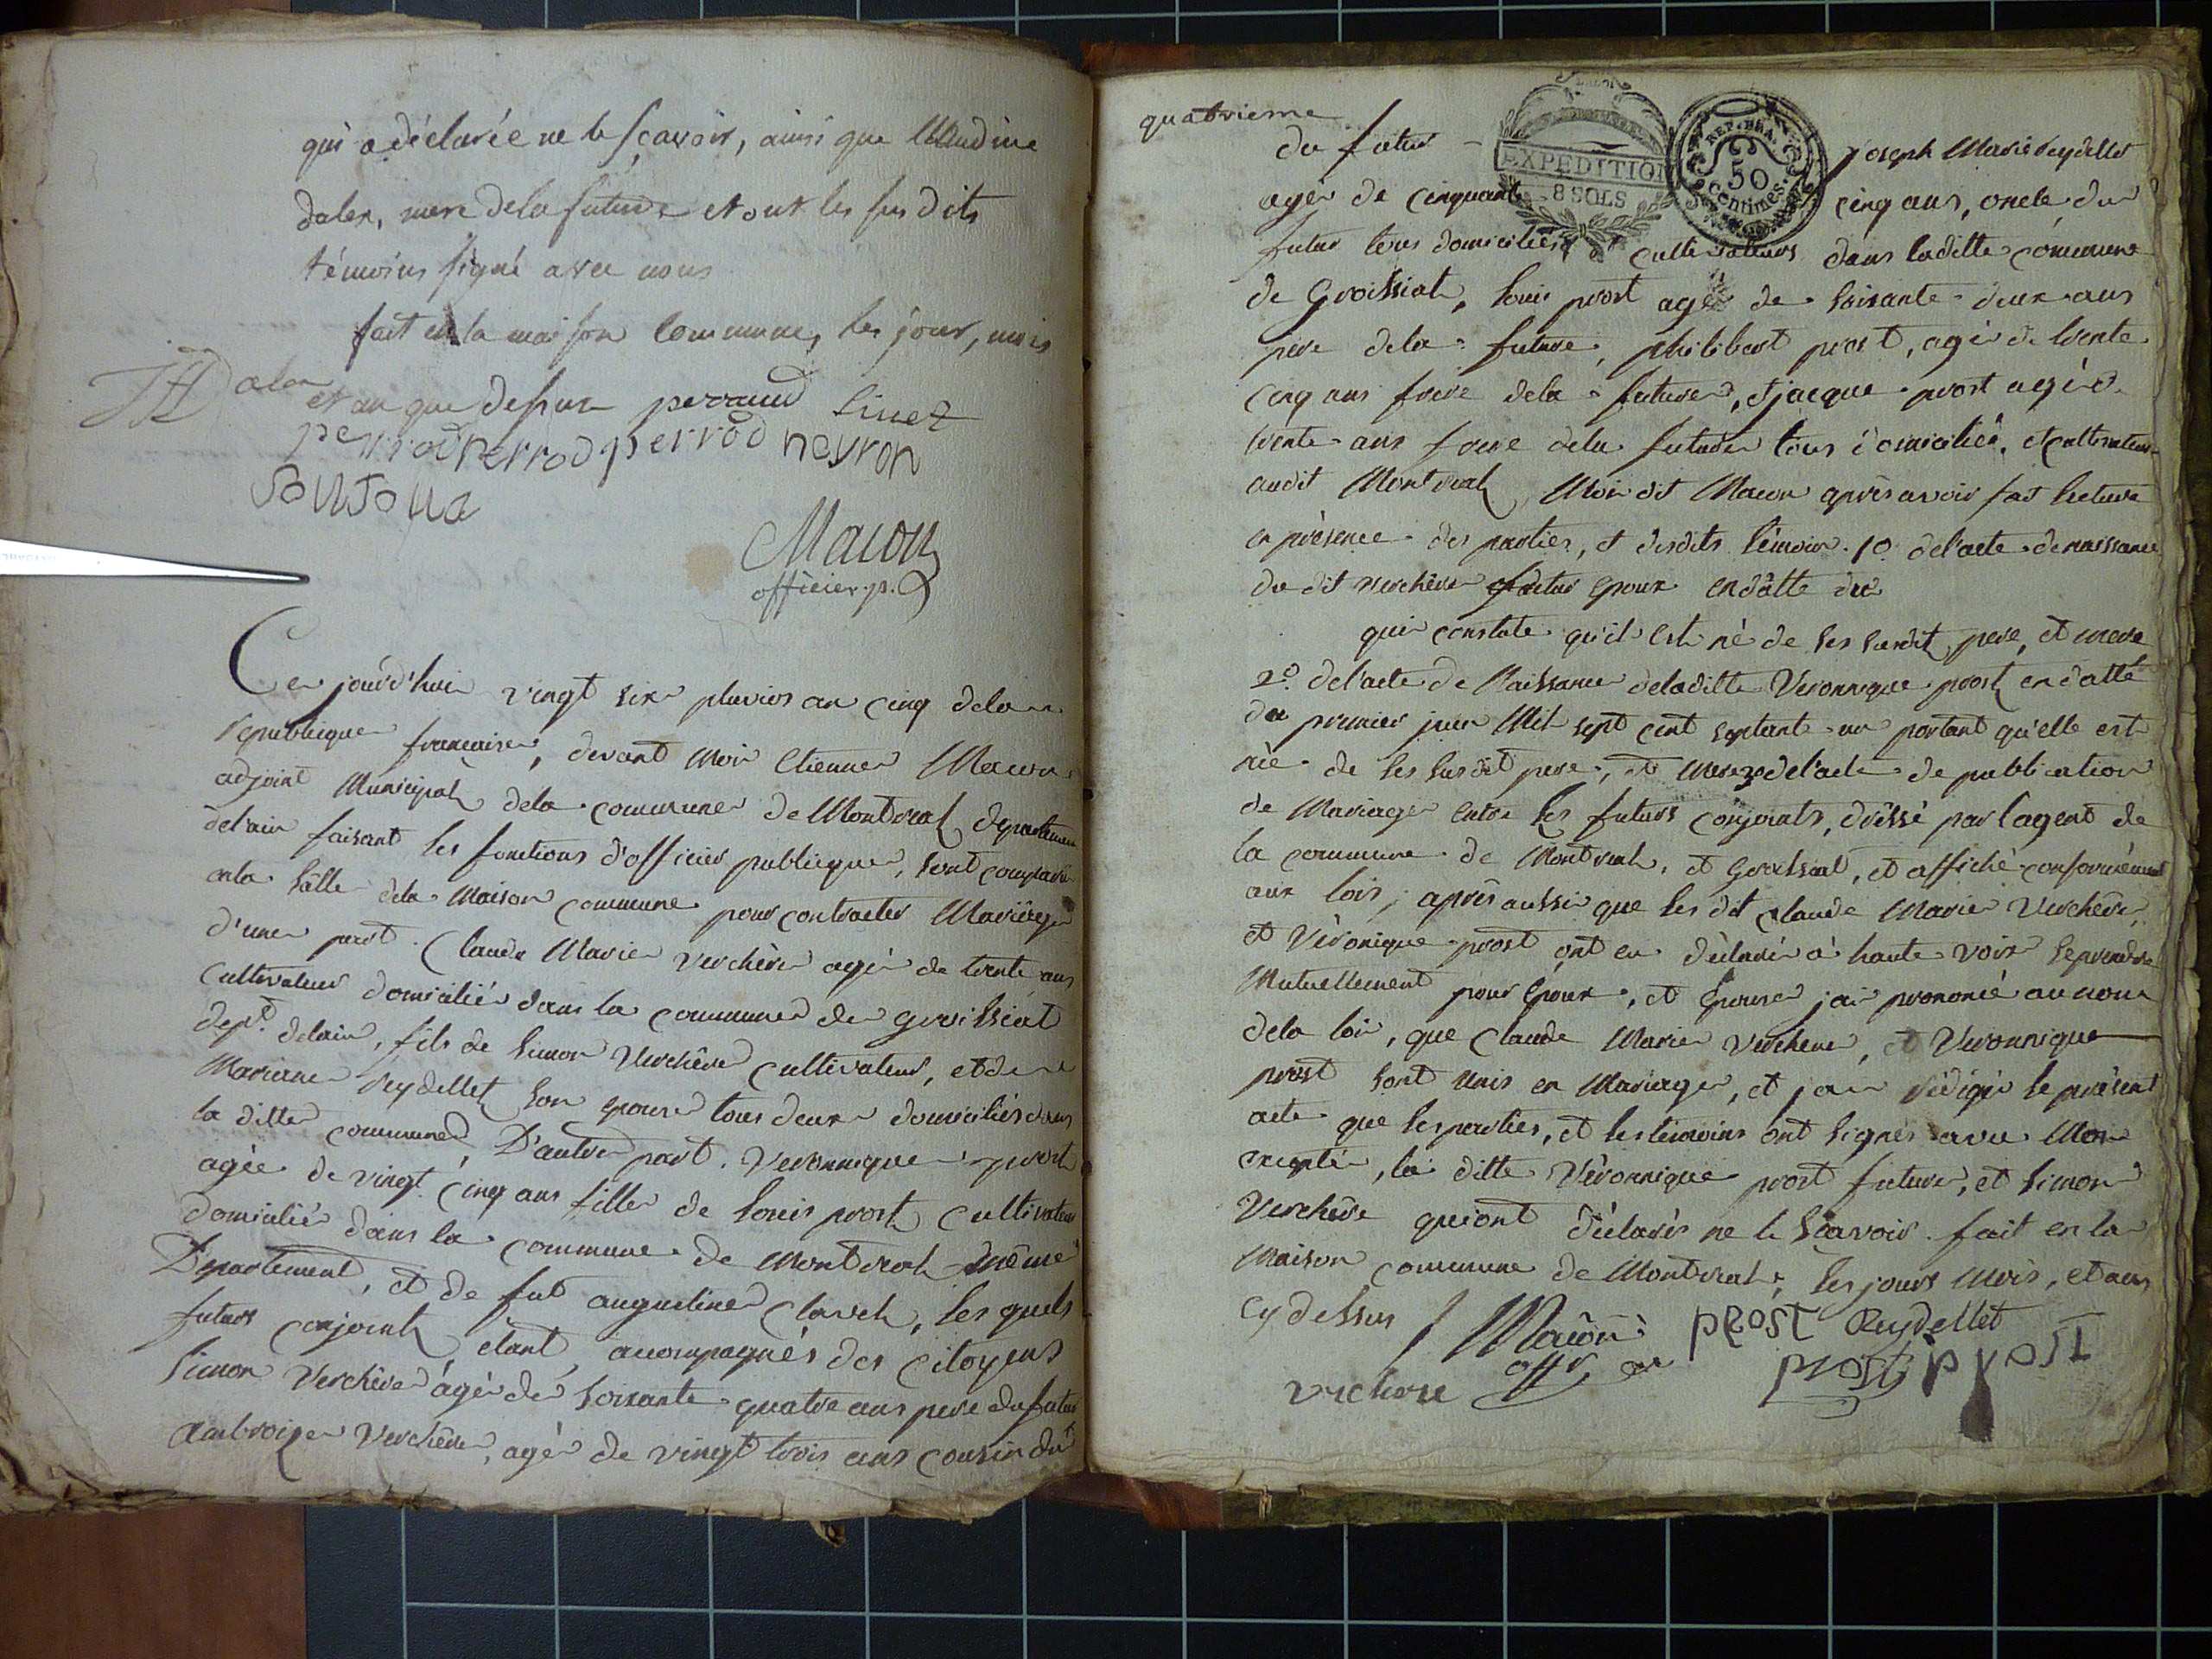 qui a déclarée ne le sçavoir, ainsi que Claudine
dalex, mere dela future et ont les susdits
témoins signé avec nous
fait en la maison Commune, les jour, mois
et an que dessus perraud Linet
perrod perrod perrod neyron
Macon
officier p.
Ce jourd'hui vingt six pluvios an cinq dela
republique francaise, devant Moi Etienne Macon
adjoint Municipal dela commune de Montreal departement
delain faisant les fonctions d'officier publique, sont comparu
en la sâlle dela Maison commune pour contracter Mariâge
d'une part. Claude Marie Verchère agé de trente ans
Cultivateur domicilié dans la commune de groissiat
depᵗ. delain, fils de Simon Verchère cultivateur, et de
Mariane Reydellet son epouse tous deux domiciliés dans
la ditte commune, D'autre part. Veronnique prost
agée de vingt cinq ans fille de Louis prost Cultivateur
domicilié dans la commune de Montreal même
Departement, et de fut augustine Clavel, les quels
futurs conjoints étant accompagnés des Citoyens
Simon Verchère âgé de soixante quatre ans pere du futur
Ambroise Verchère, agé de vingt trois ans cousin du
quatrieme
EXPEDITION
8 SOLS
REP. FRA.
50
Centimes
du futur joseph Marie Reydellet
agée de cinquante cinq ans, oncle du
futur tous domiciliés et cultivateurs dans laditte commune
de Groissiat, Louis prost agé de soixante deux ans
pere dela future, philibert prost, agé de trente
cinq ans frere dela future, et jacque prost agé de
trente ans frere dela future tous domiciliés, et cultivateurs
audit Montreal, Moi dit Macon après avoir fait lecture
en présence des parties, et desdits témoins. 1º. de l'acte de naissance
du dit Verchère futur epoux en dâtte du
qui constate qu'il est né de ses susdit pere, et mere
2º. de l'acte de Naissance deladitte Veronnique prost en datte
du premier juin Mil sept cent septante un portant qu'elle est
née de ses susdit pere, et mere 3º de l'acte de publication
de Mariage entre les futurs conjoints, dréssé par l'agent de
la commune de Montreal, et Groissiat, et affiché conformément
aux lois, après aussi que les dit Claude Marie Verchère,
et Vèronique prost ont eu déclaré à haute voix se prendre
Mutuellement pour Epoux, et Epouse jai prononcé au nom
dela loi, que Claude Marie Verchere, et Veronnique
prost sont Unis en Mariage, et jai rédigé le présent
acte que les parties, et les témoins ont signés avec Moi
excepté, la ditte Vèronnique prost future, et Simon
Verchère qui ont déclarés ne le Scavoir. fait en la
Maison commune de Montreal, les jours Mois, et an
Cy dessus Macon PROST Reydellet
offr prost prost
vrchere